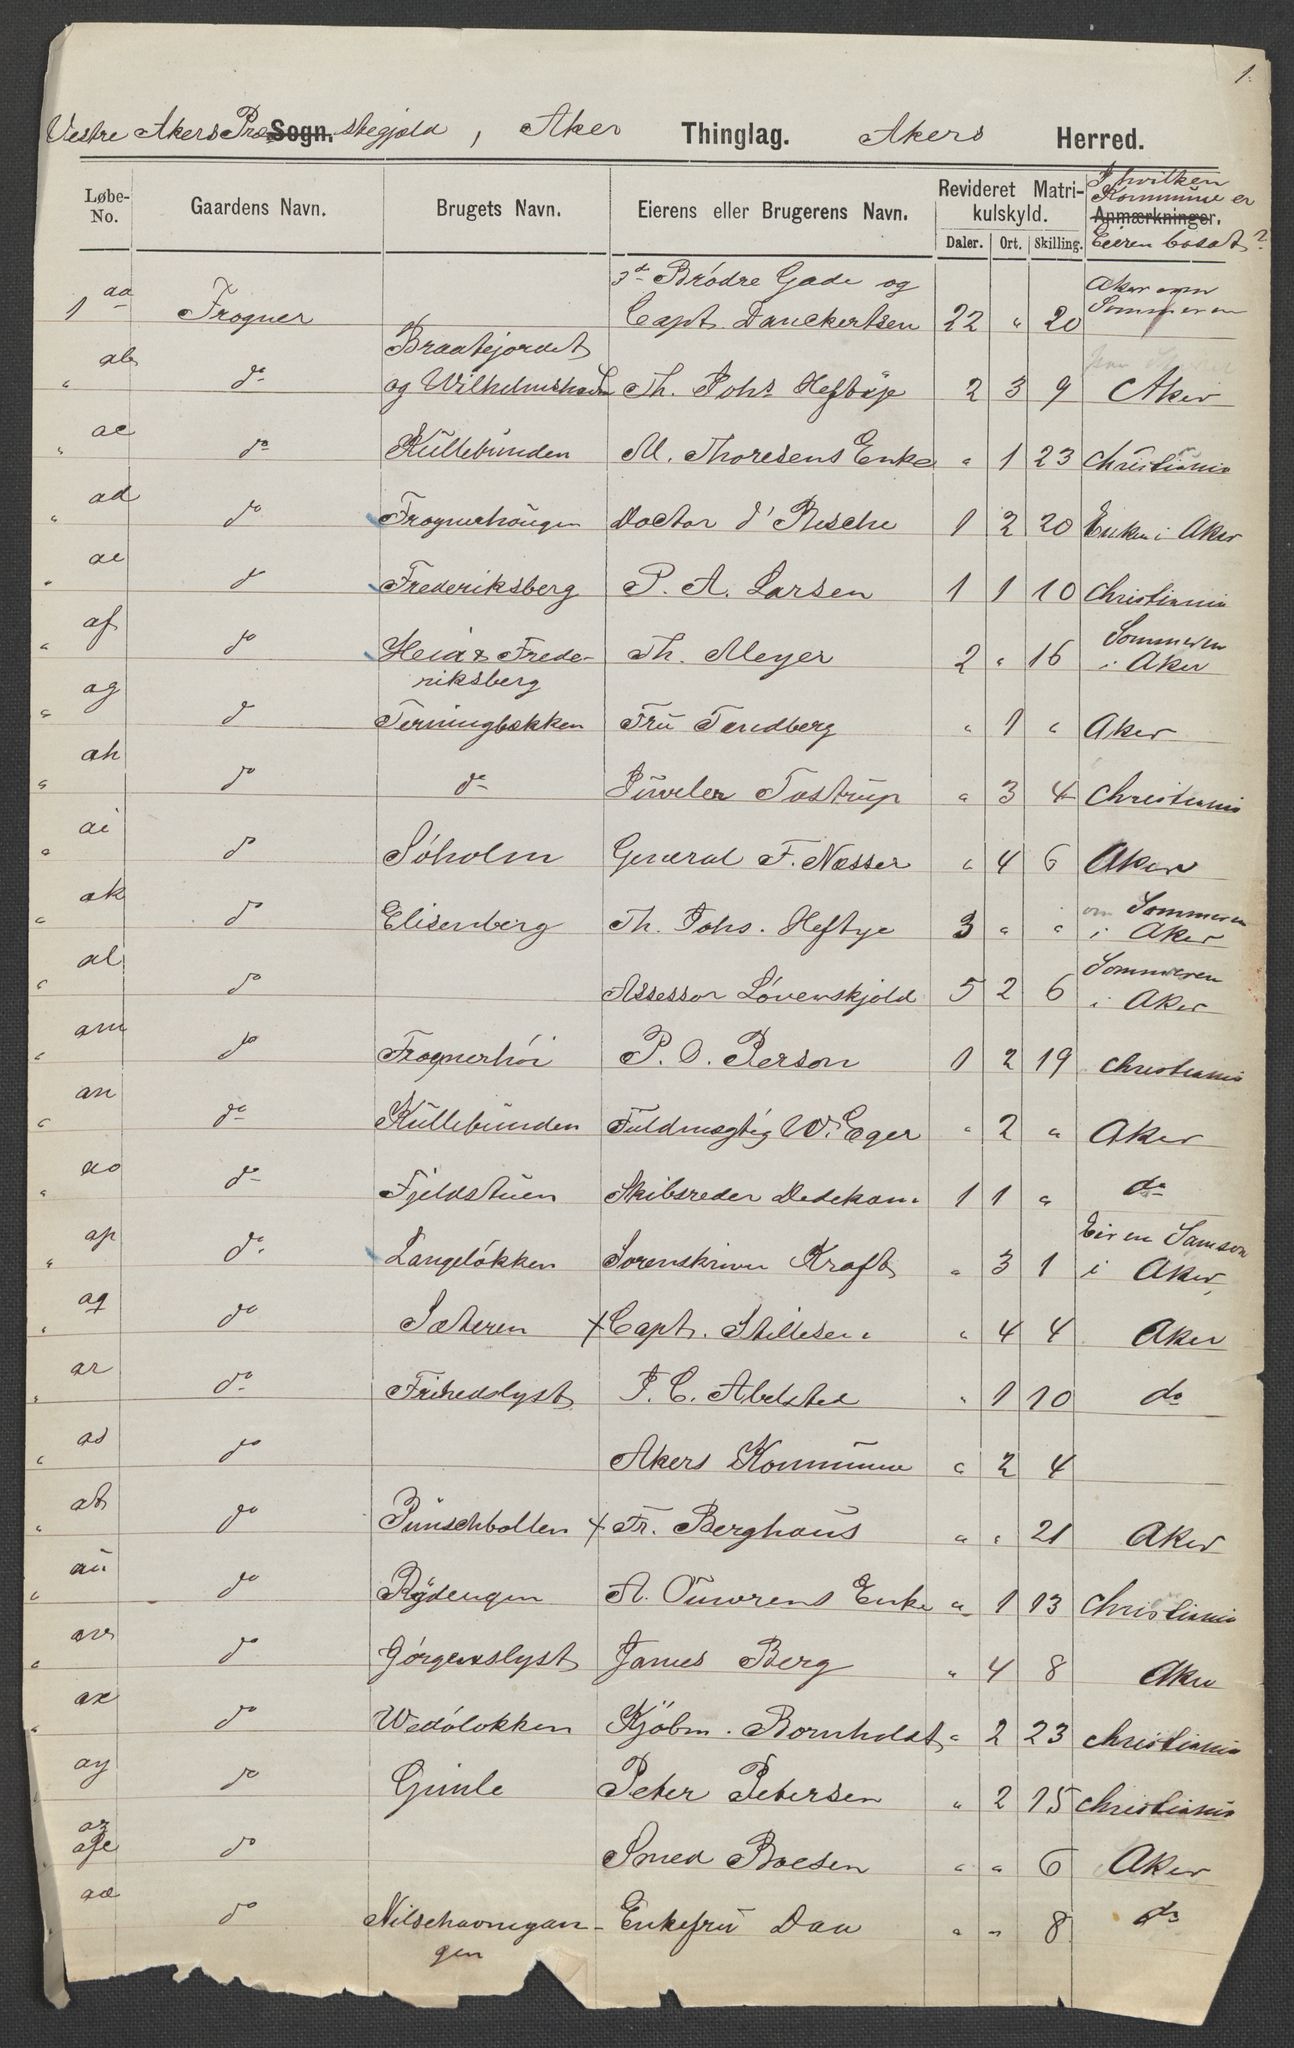 1.
Vestre Akers Præ Sogn. stegjeld, Aker Thinglag. Akers Herred.
Løbe-No. Gaardens Navn. Brugets Navn. Eierens eller Brugerens Navn. Revideret Matrikulskyld. Anmærkninger.
I hvilken Kommune er Eieren bosat?
Daler. Ort. Skilling.
1 aa Frogner Brødre Gade og Capt. Danckertsen 22 " 20 Aker om Sommeren
" ab do Braatejordet og Th. Johs Heftye 2 3 9 Aker
" ac do Küllebunden M. Thoresens Enke " 1 23 Christiania
" ad do Frognerhaugen Doctor d' 1 2 20 Enken i Aker
" ae do Frederiksberg P. A. Larsen 1 1 10 Christiania
" af do Heia & Frederiksberg Th. Meyer 2 " 16 Sommeren i Aker
" ag do Terningbækken Fru Tandberg " 1 " Aker
" ah do do Juveler Tostrup " 3 4 Christiania
" ai do Söholm General F. Næsser " 4 6 Aker
" ak do Elisenberg Th. Johs. Heftye 3 " " om Sommeren i Aker
" al do Assessor Lövenskjold 5 2 6 Sommeren i Aker
" am do Frognerhöi P. O. Person 1 2 19 Christiania
" an do Küllebunden Fuldmægtig W. Eger " 2 " Aker
" ao do Fjeldstuen Skibsreder Dedekam 1 1 " do
" ap do Langelökken Sorenskriver Kraft " 3 1 Eieren i Aker
" aq do Sæteren × Capt. Stillesen " 4 4 Aker
" ar do Frihedslyst J. C. Abelsted " 1 10 do
" as do Akers Kommune " 2 4
" at do Punschbollen × Fr. Berghaus " " 21 Aker
" au do Rydengen A. Enke " 1 13 Christiania
" av do Görgenslyst James Berg " 4 8 Aker
" ax do Wedölokken Kjöbm. Bornholdt " 2 23 Christiania
" ay do Gimle Peter Petersen " 2 15 Christiania
az do Smed Boesen " " 6 Aker
aæ do Nilsehavnegangen Enkefru Daa " " 8 do